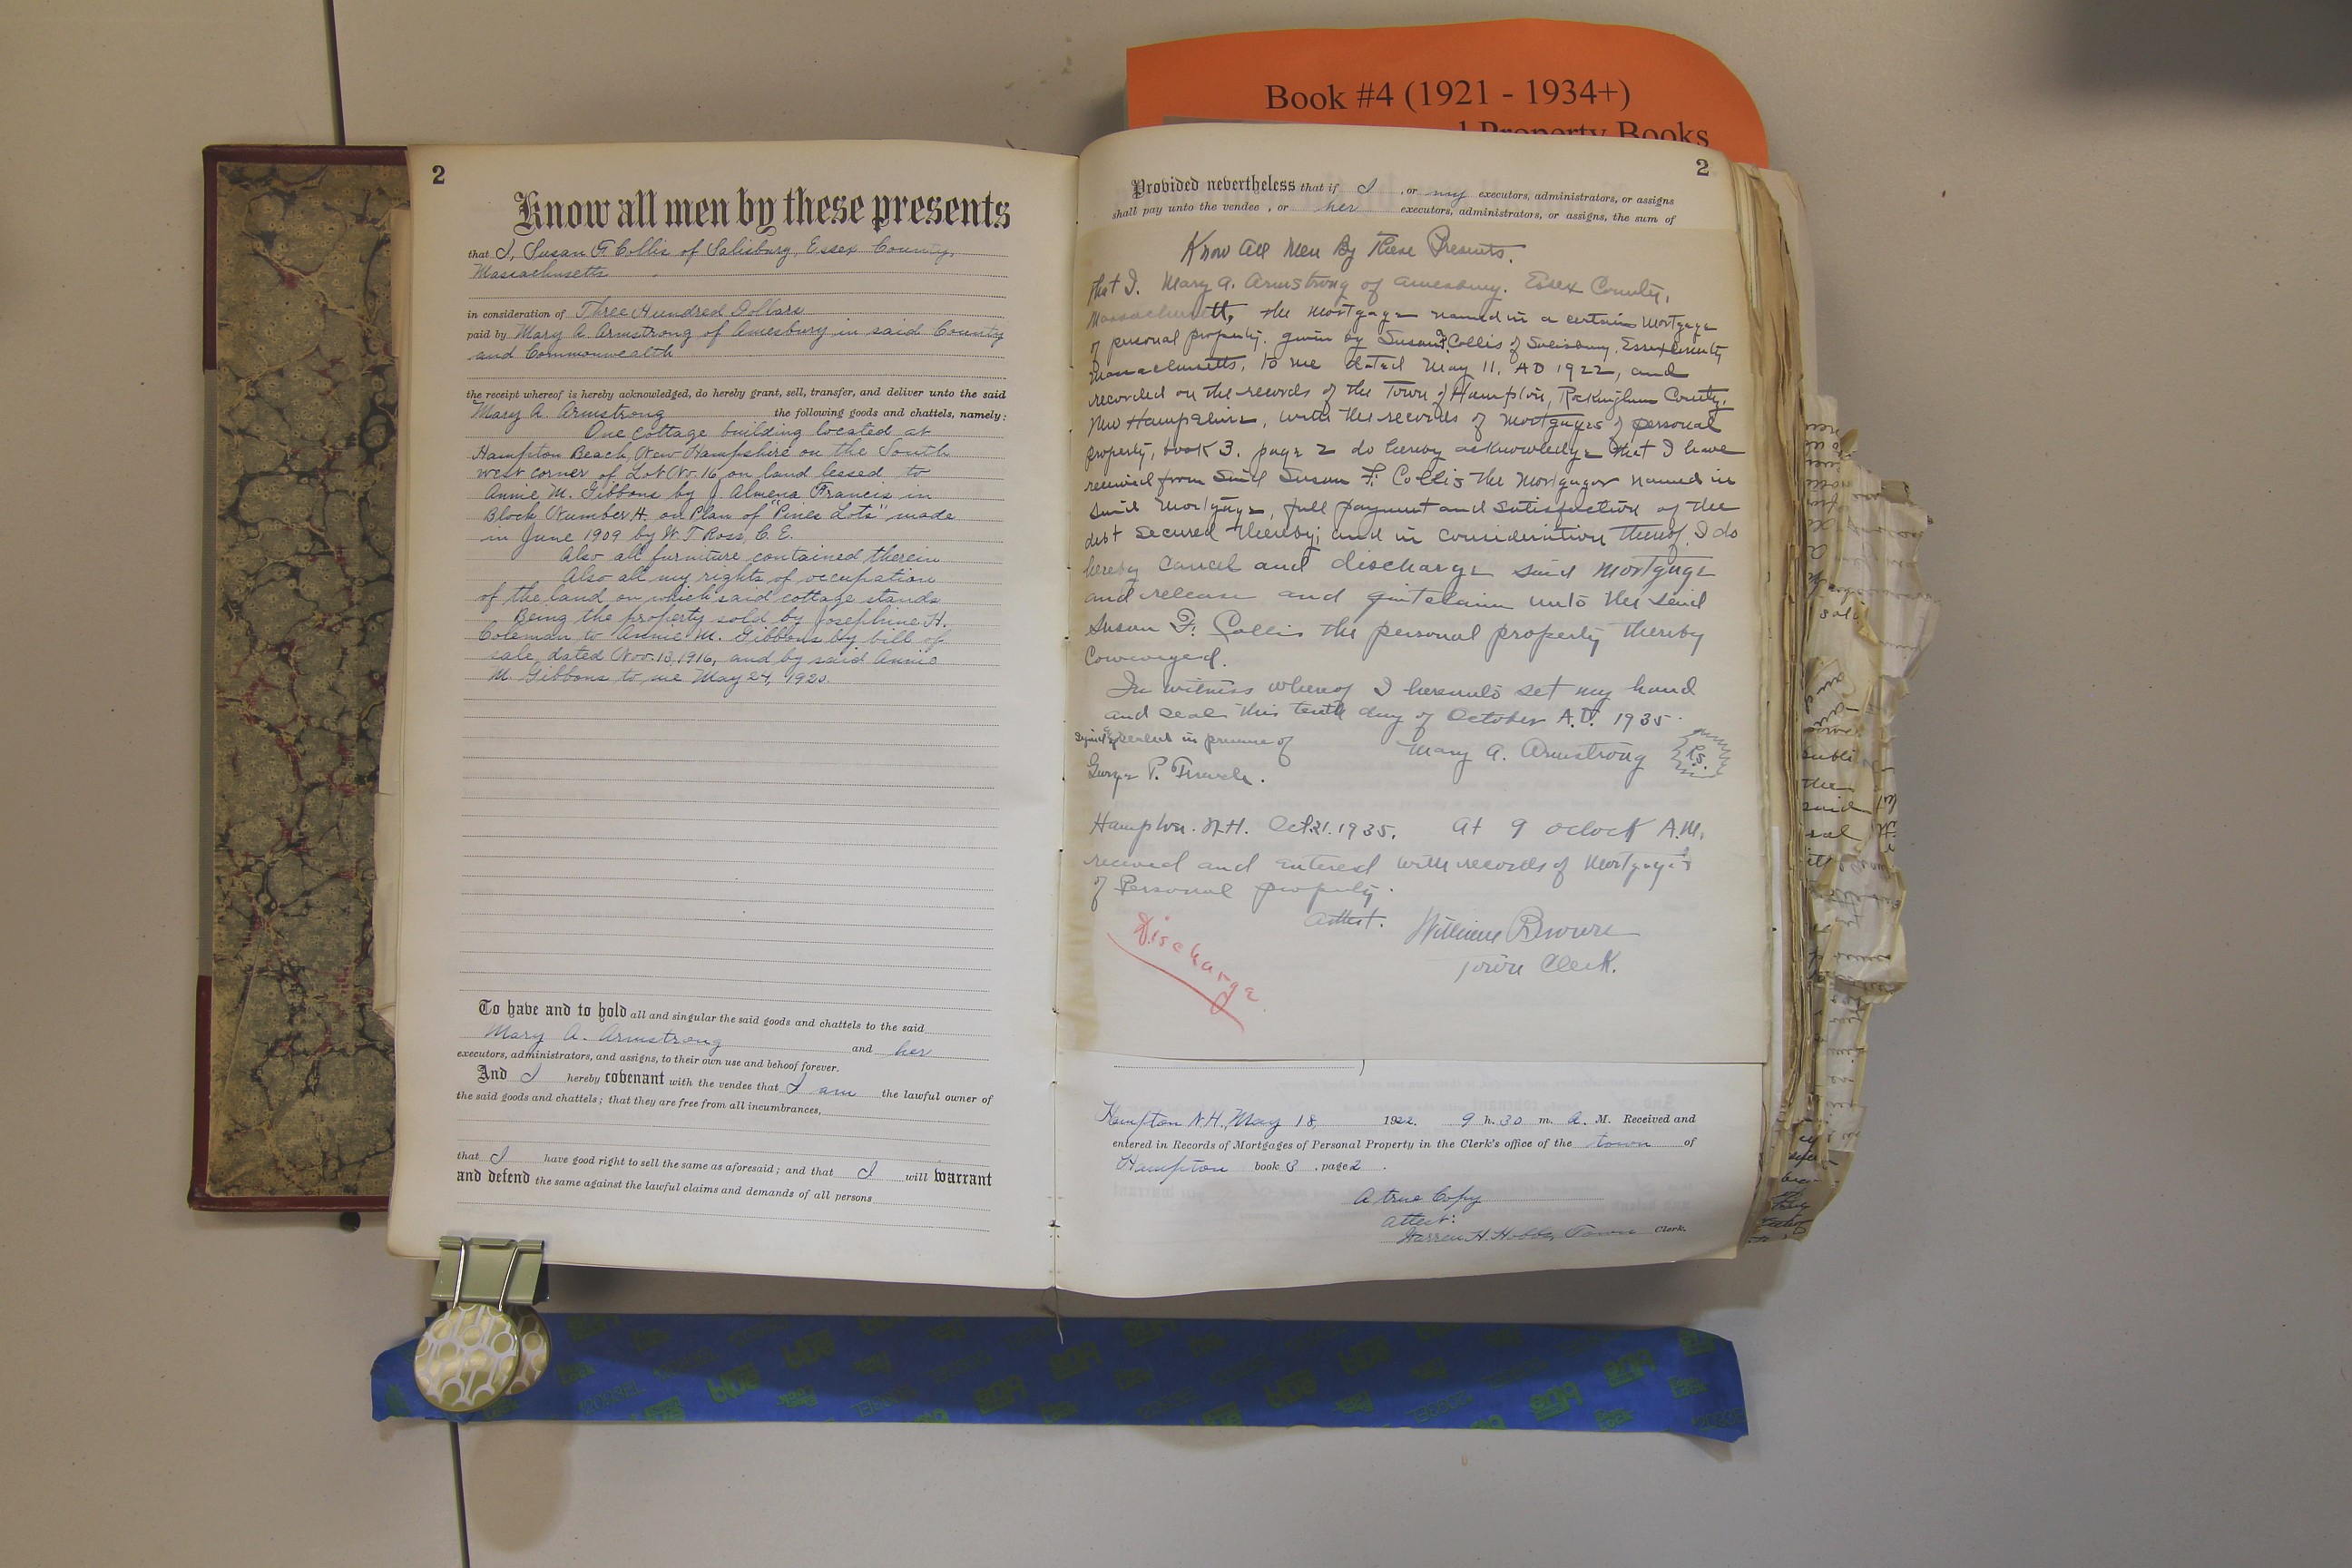 Book #4 (1921 - 1934+)
Property Books
2
Know all men by these presents
that I, Susan F. Collis of Salisbury, Essex County,
Massachusetts
in consideration of Three Hundred Dollars
paid by Mary A. Armstrong of Amesbury in said County
and Commonwealth
the receipt whereof is hereby acknowledged, do hereby grant, sell, transfer, and deliver unto the said
Mary A. Armstrong the following goods and chattels, namely:
One cottage building located at
Hampton Beach, New Hampshire on the South
west corner of Lot No. 16 on land leased to
Annie M. Gibbons by J. Almena Francis in
Block Number H. on Plan of "Pines Lots" made
in June 1909 by W. T. Ross, C. E.
Also all furniture contained therein
Also all my rights of occupation
of the land on which said cottage stands
Being the property sold by Josephine H.
Coleman to Annie M. Gibbons by bill of
sale dated Nov. 13, 1916, and by said Annie
M. Gibbons to me May 24, 1920.
To have and to hold all and singular the said goods and chattels to the said
Mary A. Armstrong and her
executors, administrators, and assigns, to their own use and behoof forever.
And I hereby covenant with the vendee that I am the lawful owner of
the said goods and chattels; that they are free from all incumbrances,
that I have good right to sell the same as aforesaid; and that I will warrant
and defend the same against the lawful claims and demands of all persons
2
Provided nevertheless that if I , or my executors, administrators, or assigns
shall pay unto the vendee , or her executors, administrators, or assigns, the sum of
Know All Men By These Presents.
that I. Mary A. Armstrong of Amesbury. Essex County,
Massachusetts, the mortgagee named in a certain mortgage
of personal property. given by Susan F. Collis of Salisbury. Essex County
Massachusetts, to me dated May 11, AD 1922, and
recorded on the records of the Town of Hampton, Rockingham County,
New Hampshire, with the records of mortgages of personal
property, book 3. page 2 do hereby acknowledge that I have
received from said Susan F. Collis the mortgagor named in
said mortgage, full payment and satisfaction of the
debt secured thereby; and in consideration thereof. I do
hereby cancel and discharge said mortgage
and release and quitclaim unto the said
Susan F. Collis the personal property thereby
conveyed.
In witness whereof I hereunto set my hand
and seal this tenth day of October A.D. 1935.
Signed & sealed in presence of
Mary A. Armstrong L.S.
George P.
Hampton. N.H. Oct. 21. 1935. At 9 oclock A.M.
received and entered with records of mortgages
of Personal property.
Attest. William Brown
Town Clerk.
Discharge
Hampton N.H., May 18, 1922. 9 h. 30 m. A. M. Received and
entered in Records of Mortgages of Personal Property in the Clerk's office of the town of
Hampton book 3 , page 2 .
A true Copy
Attest:
Warren H. Hobbs, Town Clerk.